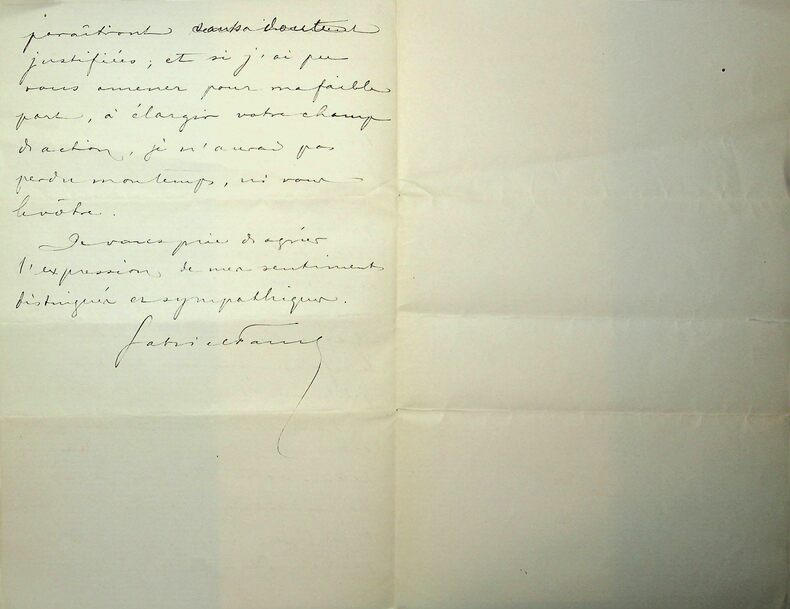 paraîtront sans doute
justifiées ; et si j'ai pu
vous amener pour ma faible
part, à élargir votre champ
d'action, je n'aurai pas
perdu mon temps, ni vous
le vôtre.
Je vous prie d'agréer
l'expression de mes sentiments
distingués et sympathiques.
Gabriel Fauré